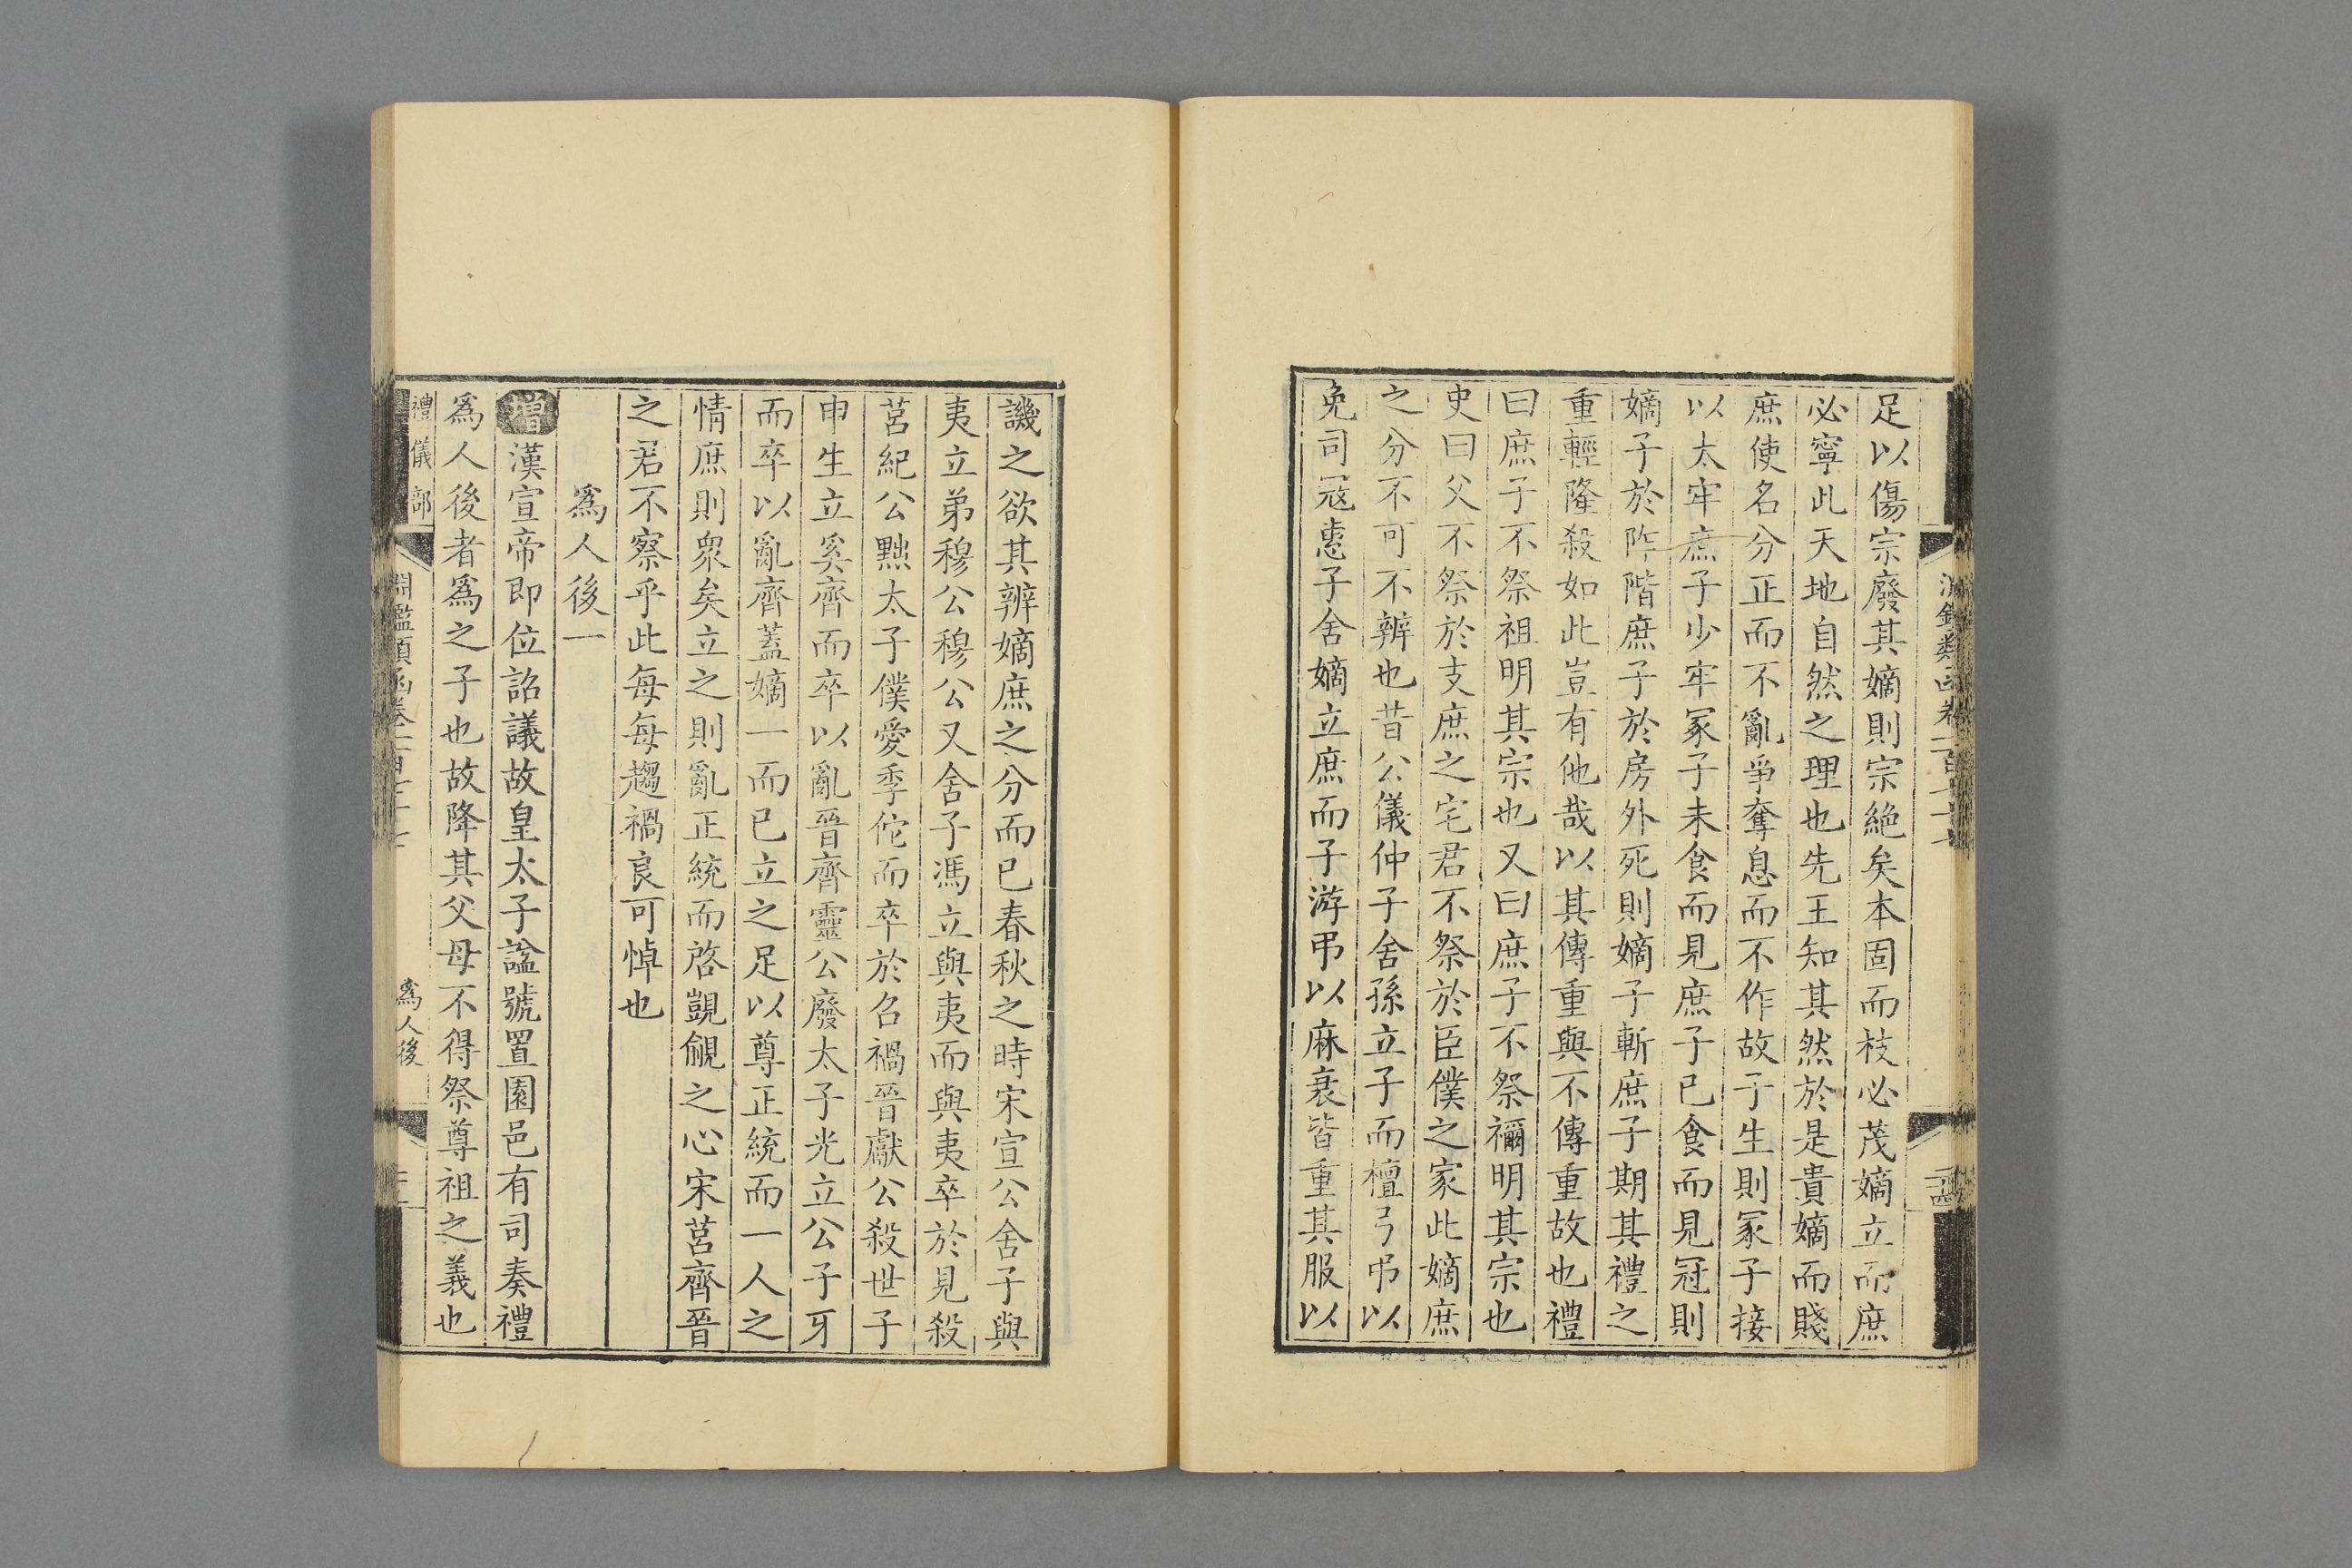 足以傷宗廢其嫡則宗絶矣本固而枝必茂嫡立而庶
必寧此天地自然之理也先王知其然於是貴嫡而賤
庶使名分正而不亂爭奪息而不作故子生則冢子接
以太牢庶子少牢冢子未食而見庶子已食而見冠則
嫡子於阼階庶子於房外死則嫡子斬庶子期其禮之
重輕隆殺如此豈有他哉以其傳重與不傳重故也禮
曰庶子不祭祖明其宗也又曰庶子不祭禰明其宗也
史曰父不祭於支庶之宅君不祭於臣僕之家此嫡庶
之分不可不辨也昔公儀仲子舍孫立子而檀弓弔以
免司冦惠子舍嫡立庶而子游弔以麻衰皆重其服以
譏之欲其辨嫡庶之分而已春秋之時宋宣公舍子與
夷立弟穆公穆公又舍子馮立與夷而與夷卒於見殺
莒紀公黜太子僕愛季佗而卒於召禍晉獻公殺世子
申生立奚齊而卒以亂晉齊靈公廢太子光立公子牙
而卒以亂齊蓋嫡一而已立之足以尊正統而一人之
情庶則衆矣立之則亂正統而啓覬覦之心宋莒齊晉
之君不察乎此每每趨禍良可悼也
爲人後一
增漢宣帝即位詔議故皇太子諡號置園邑有司奏禮
爲人後者爲之子也故降其父母不得祭尊祖之義也
禮儀部
淵鑑類函卷一百七十七
爲人後